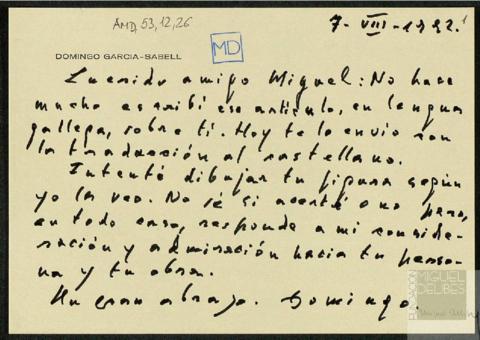 AMD, 53, 12, 26
7-VIII-1992.
1
MD
DOMINGO GARCIA-SABELL
Querido amigo Miguel: No hace
mucho escribí ese artículo, en lengua
gallega, sobre ti. Hoy te lo envío con
la traducción al castellano.
Intenté dibujar tu figura según
yo la veo. No sé si acerté o no pero,
en todo caso, responde a mi conside-
ración y admiración hacia tu perso-
na y tu obra.
Un gran abrazo. Domingo.
FUNDACIÓN
MIGUEL
DELIBES